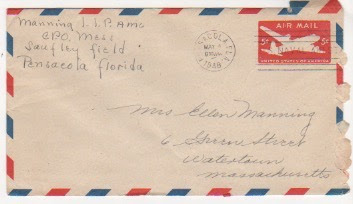 Manning J. J. P. Amc
CPO, Mess
Saufley field
Pensacola florida
ACOLA, FLA
MAY
1948
AIR MAIL
5¢ 5¢
UNITED STATES OF AMERICA
Mrs Ellen Manning
6 Greene Street
Watertown
Massachusetts